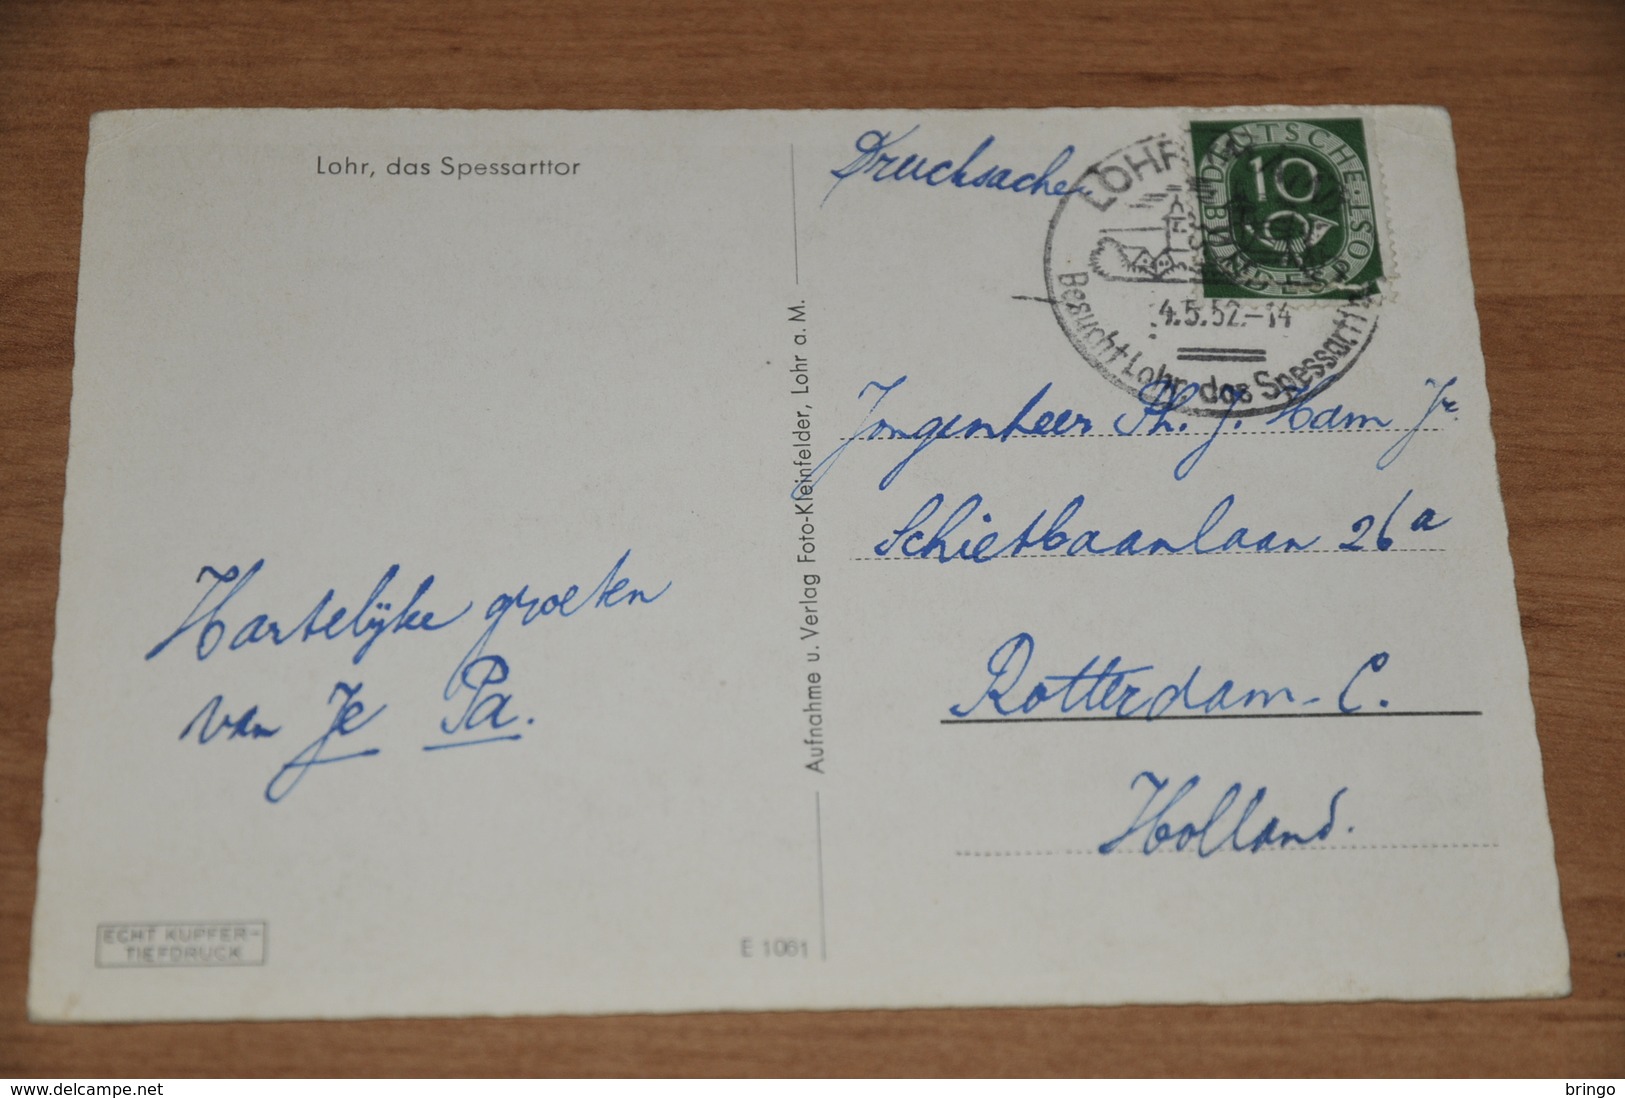 Lohr, das Spessarttor
Drucksache
LOHR
DEUTSCHE · BUNDESPOST
10
4.5.52.-14
Besucht Lohr, das Spessartt
Hartelijke groeten
van Je Pa.
Aufnahme u. Verlag Foto-Kleinfelder, Lohr a. M.
Jongenheer Ph. J. Ham Jr.
Schietbaanlaan 26a
Rotterdam-C.
Holland.
ECHT KUPFER-
TIEFDRUCK
E 1061
www.delcampe.net
bringo